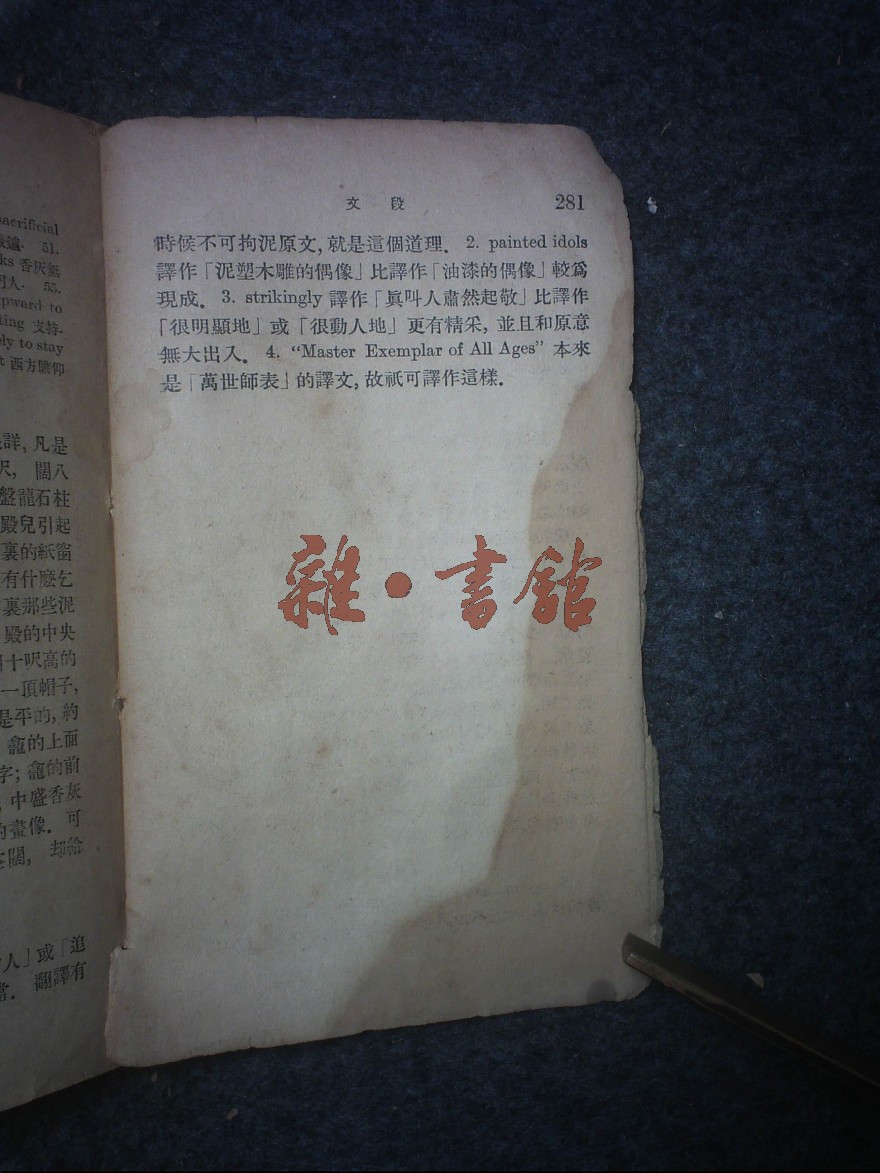 sacrificial
51.
香灰甁
55.
upward to
支持.
to stay
西方瞻仰
詳, 凡是
闊八
盤龍石柱
殿兒引起
裏的紙窗
有什麼乞
裏那些泥
殿的中央
十呎高的
一頂帽子,
是平的, 約
龕的上面
字; 龕的前
中盛香灰
的畫像. 可
却給
人」或「追
當. 翻譯有
文 段 281
時候不可拘泥原文, 就是這個道理. 2. painted idols
譯作「泥塑木雕的偶像」比譯作「油漆的偶像」較爲
現成. 3. strikingly 譯作「眞叫人肅然起敬」比譯作
「很明顯地」或「很動人地」更有精采, 並且和原意
無大出入. 4. “Master Exemplar of All Ages” 本來
是「萬世師表」的譯文, 故祇可譯作這樣.
雜•書館